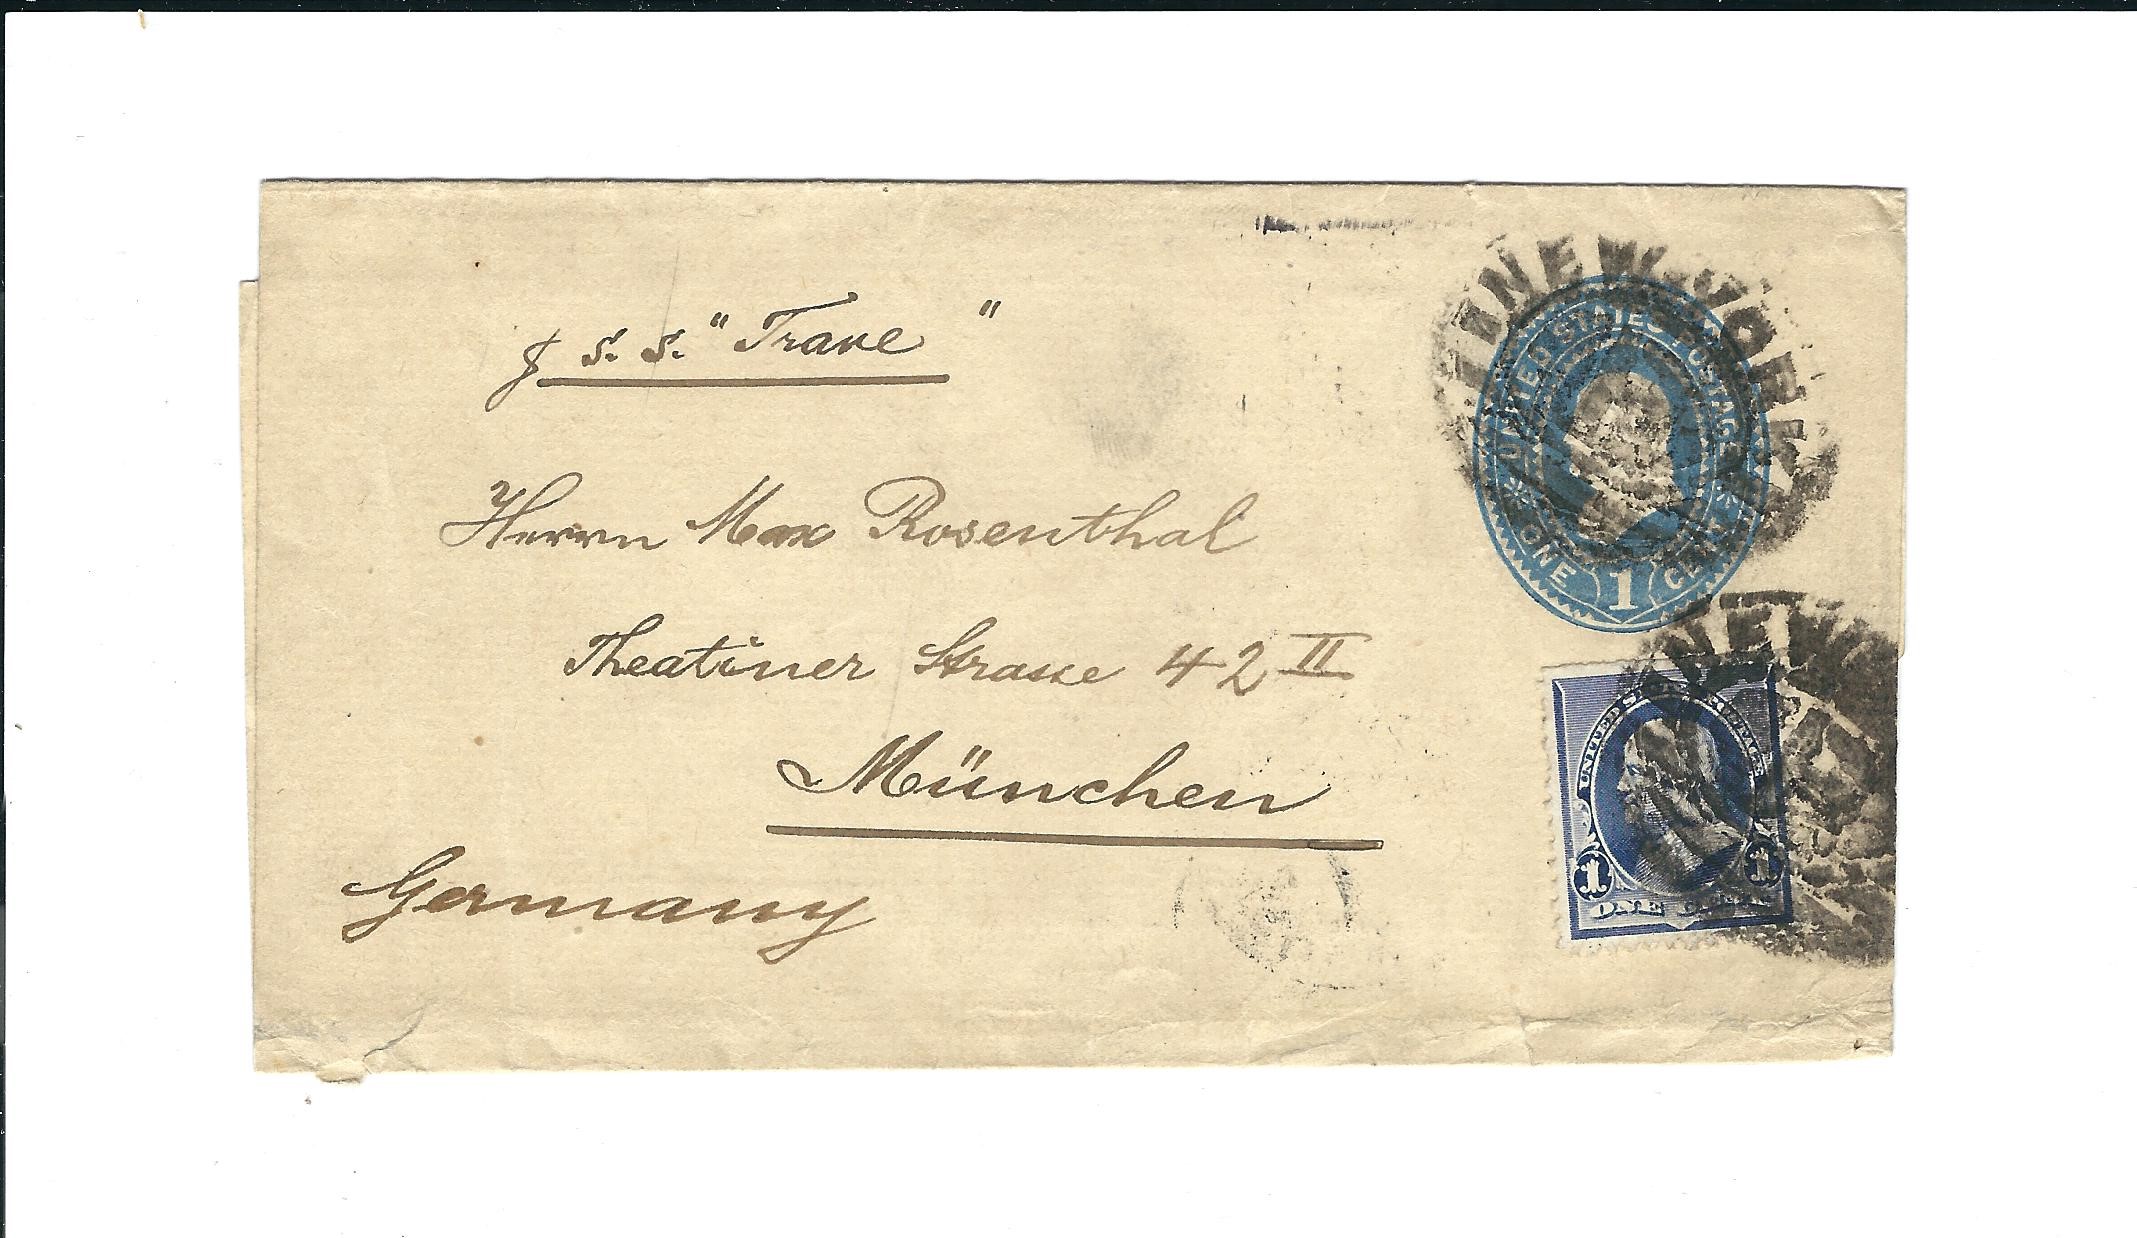 ℘ S. S. "Trave"
Herrn Max Rosenthal
Theatiner Strasse 42 II
München
Germany
NEW YORK
UNITED STATES POSTAGE
ONE 1 CENT
NEW
UNITED STATES POSTAGE
1 1
ONE CENT